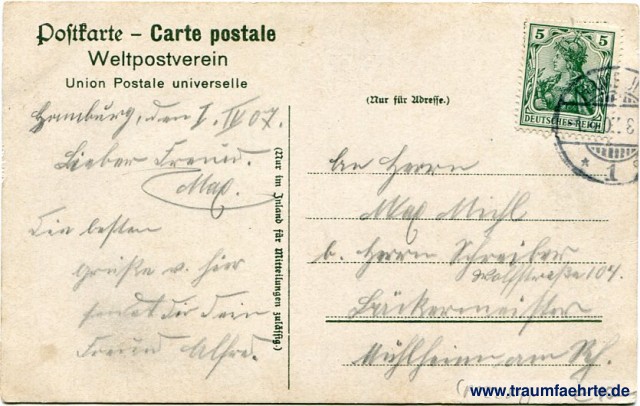 Postkarte – Carte postale
Weltpostverein
Union Postale universelle
5 5
DEUTSCHES REICH
(Nur für Adresse.)
Hamburg, den 1. IV 07.
Lieber Freund.
Max.
Die besten
Grüße v. hier
sendet Dir dein
Freund Alfred.
(Nur im Inland für Mitteilungen zulässig.)
An Herrn
Max Michl
b. Herrn Schreiber
Wolfstraße 104.
Bäckermeister
Mühlheim am Rh.
www.traumfaehrte.de